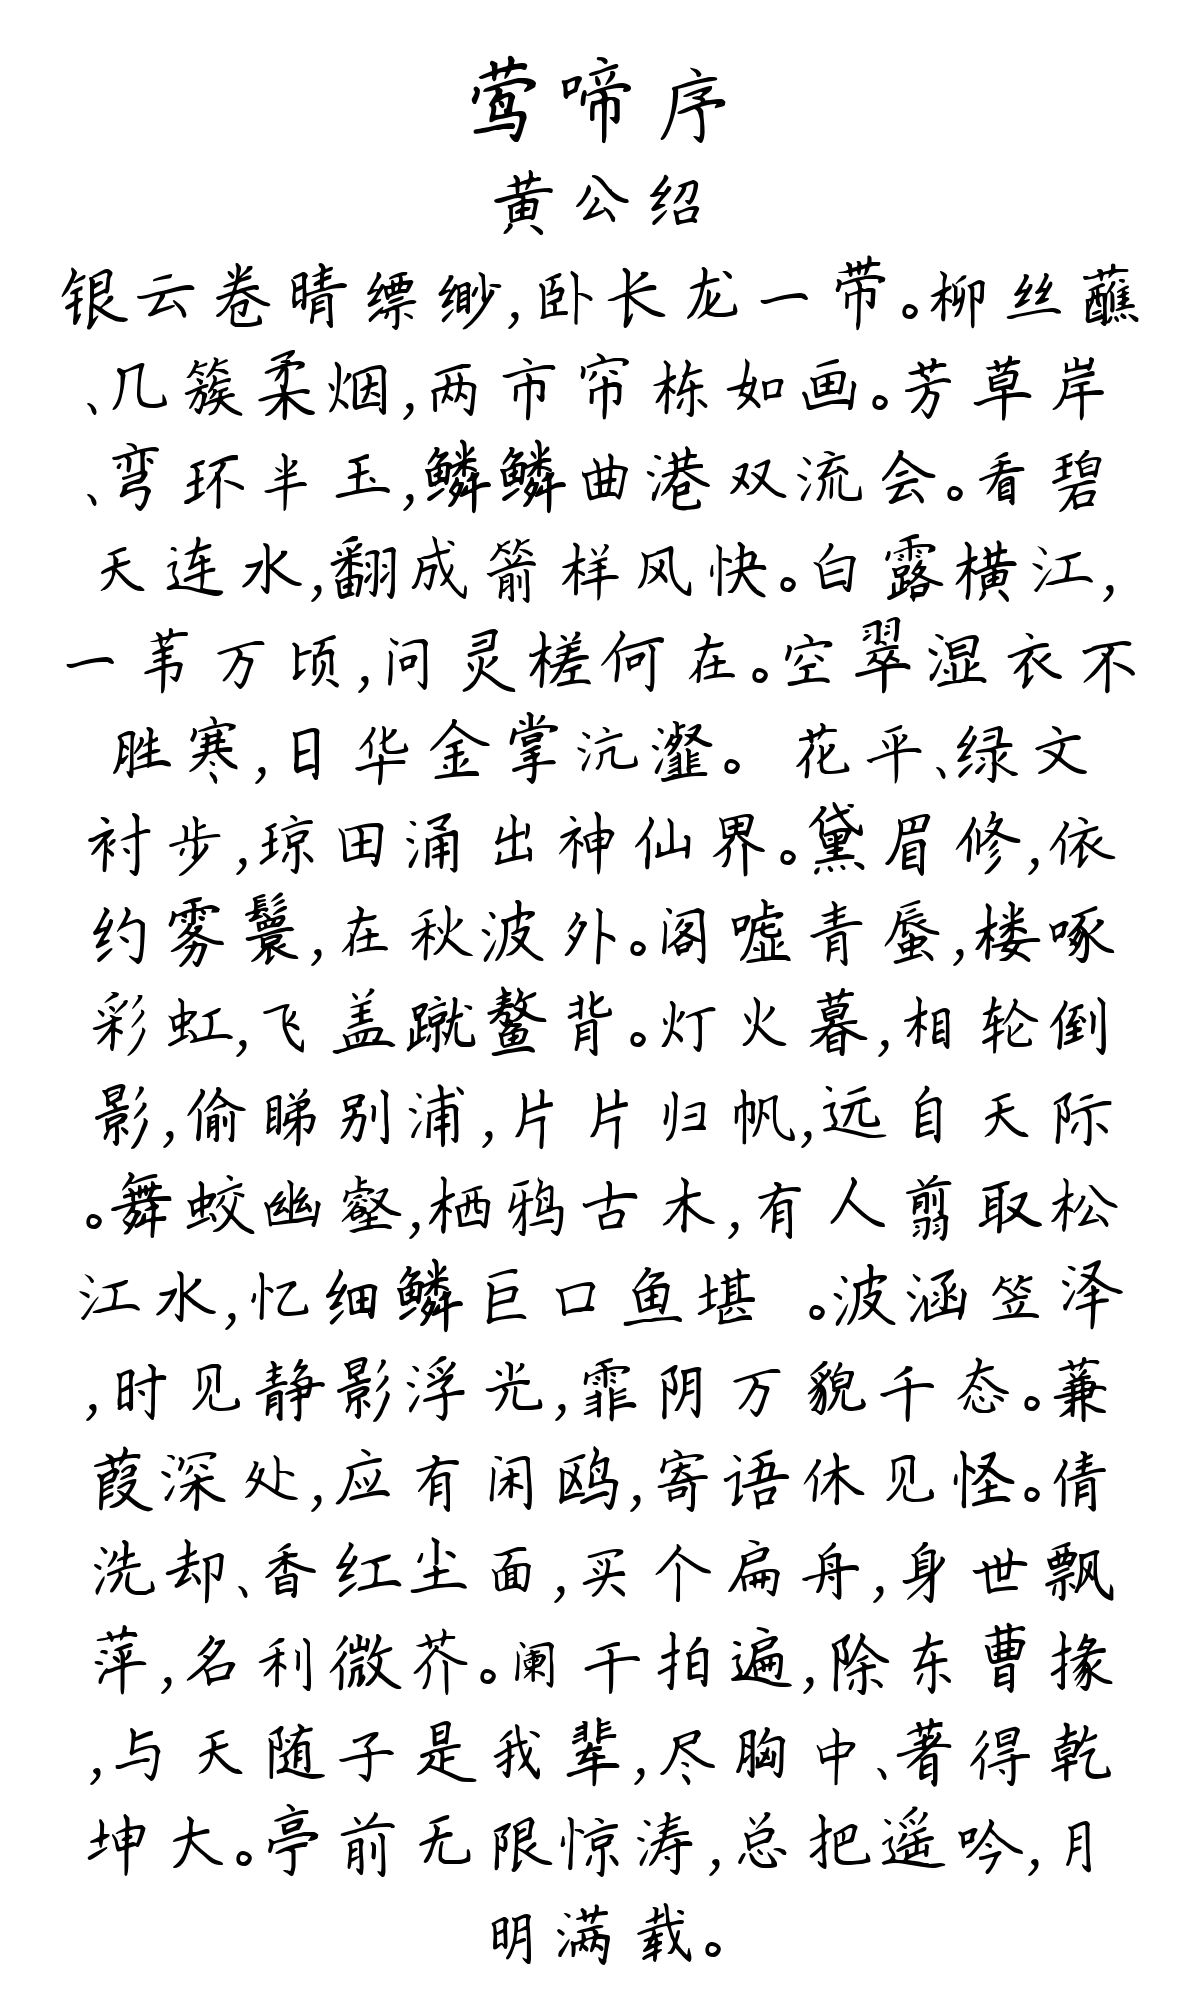 莺啼序
黄公绍
银云卷晴缥缈,卧长龙一带。柳丝蘸
、几簇柔烟,两市帘栋如画。芳草岸
、弯环半玉,鳞鳞曲港双流会。看碧
天连水,翻成箭样风快。白露横江,
一苇万顷,问灵槎何在。空翠湿衣不
胜寒,日华金掌沆瀣。 花平、绿文
衬步,琼田涌出神仙界。黛眉修,依
约雾鬟,在秋波外。阁嘘青蜃,楼啄
彩虹,飞盖蹴鳌背。灯火暮,相轮倒
影,偷睇别浦,片片归帆,远自天际
。舞蛟幽壑,栖鸦古木,有人剪取松
江水,忆细鳞巨口鱼堪 。波涵笠泽
,时见静影浮光,霏阴万貌千态。蒹
葭深处,应有闲鸥,寄语休见怪。倩
洗却、香红尘面,买个扁舟,身世飘
萍,名利微芥。阑干拍遍,除东曹掾
,与天随子是我辈,尽胸中、著得乾
坤大。亭前无限惊涛,总把遥吟,月
明满载。